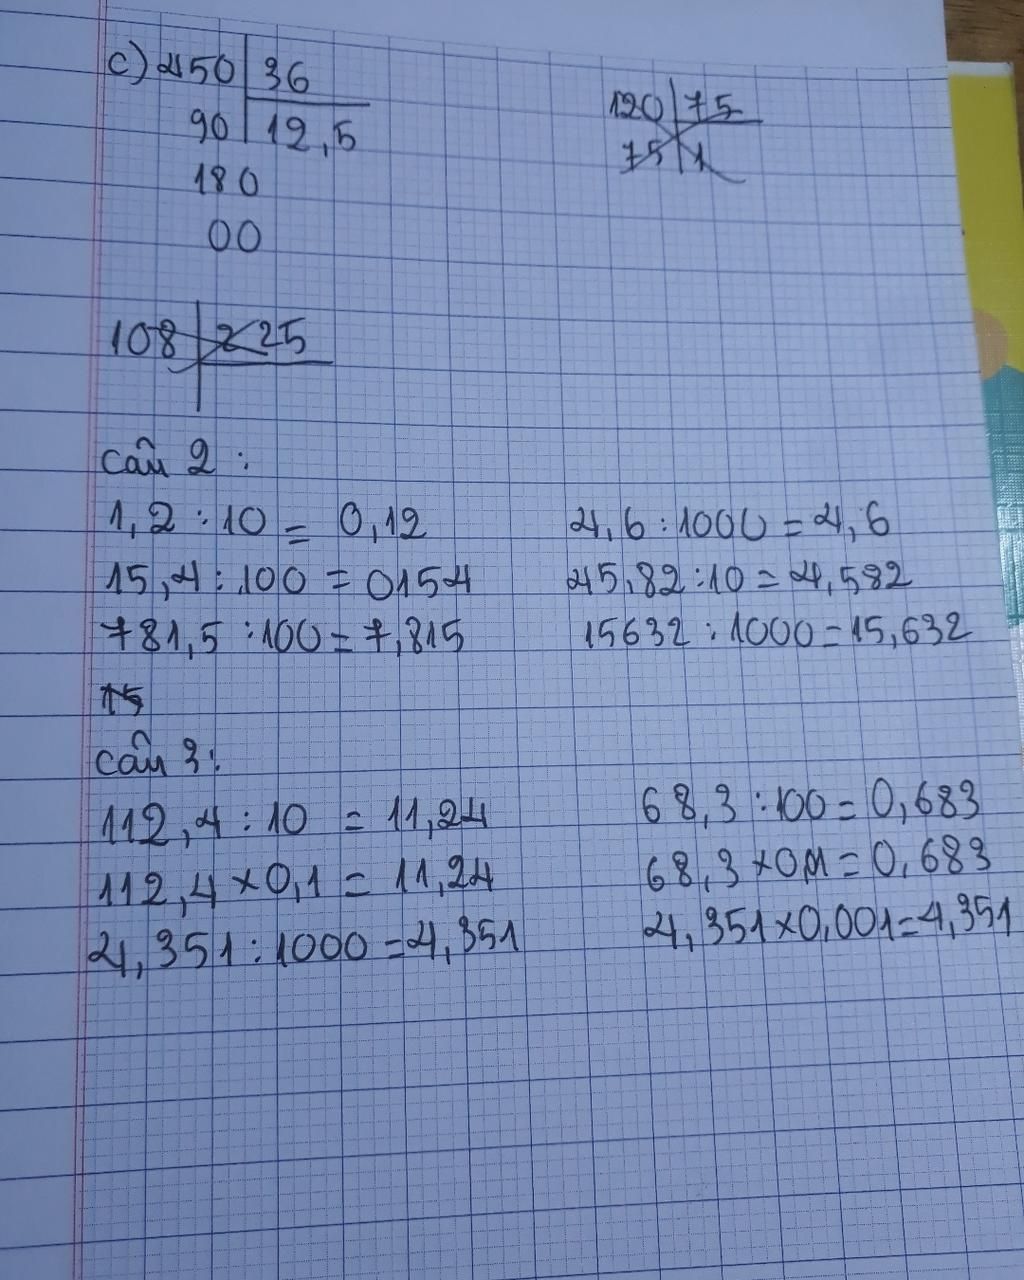 c) 450 | 36 120 | 75
90 | 12,5 75 | 1
180
00
108 | 225
câu 2 :
1,2 : 10 = 0,12 4,6 : 1000 = 4,6
15,4 : 100 = 0154 45,82 : 10 = 4,582
781,5 : 100 = 7,815 15632 : 1000 = 15,632
15
câu 3 :
112,4 : 10 = 11,24 68,3 : 100 = 0,683
112,4 × 0,1 = 11,24 68,3 × 0,01 = 0,683
4,351 : 1000 = 4,351 4,351 × 0,001 = 4,351